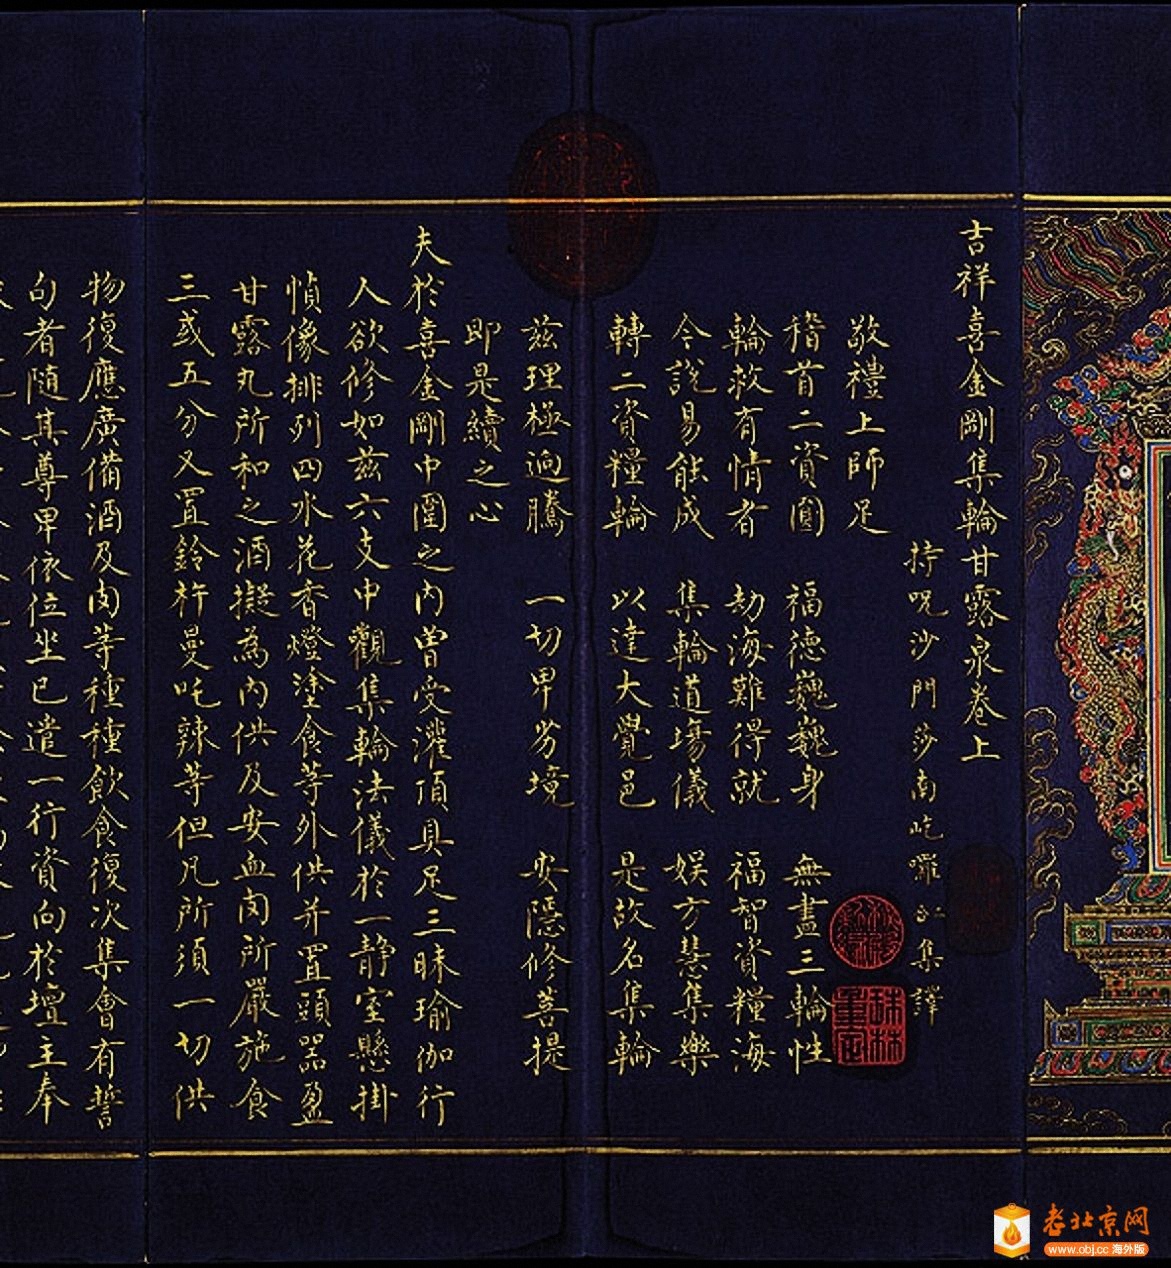 吉祥喜金剛集輪甘露泉卷上
持呪沙門莎南屹囉 集譯
敬禮上師足
稽首二資圓 福德巍巍身 無盡三輪性
輪救有情者 劫海難得就 福智資糧海
令說易能成 集輪道場儀 娛方慧集樂
轉二資糧輪 以達大覺邑 是故名集輪
茲理極迥騰 一切卑劣境 安隱修菩提
即是續之心
夫於喜金剛中圍之內曾受灌頂具足三昧瑜伽行
人欲修如茲六支中觀集輪法儀於一靜室懸掛
幀像排列四水花香燈塗食等外供并置頭器盈
甘露丸所和之酒擬為內供及安血肉所嚴施食
三或五分又置鈴杵曼吒辣等但凡所須一切供
物復應廣備酒及肉等種種飲食復次集會有誓
句者隨其尊卑依位坐已遣一行資向於壇主奉
珠林
重定
老北京网
www.obj.cc 海外版